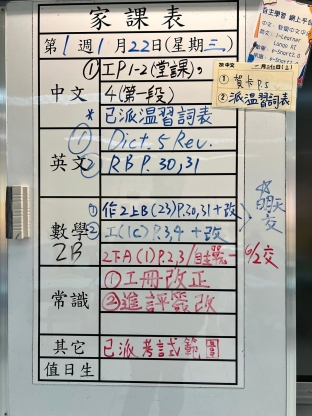 家課表
第1週1月22日(星期三)
中文
①工P1-2(堂課),
4(第一段)
*已派温習詞表
英文
① Dict. 5 Rev.
② RB P. 30,31
數學
2B
①作2上B(23)P.20,31+改
②工(1C)P.3,4+改
明天交
2下A(1)P.2,3
6/2交
常識
①工冊改正
②進評簽改
其它
已派考試範圍
值日生
自主學習 網上平台
中文
①賀卡P.5
②派温習詞表